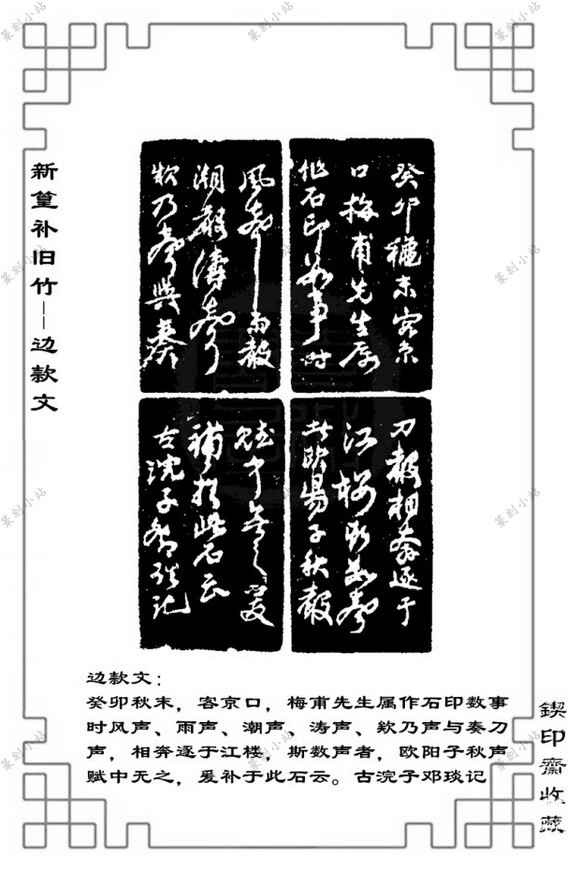 新篁补旧竹——边款文
癸卯穐末客京
口梅甫先生属
作石印数事时
风声雨声
潮声涛声
欸乃声与奏
刀声相奔逐于
江楼斯数声
者欧阳子秋声
赋中无之爰
补于此石云
古浣子邓琰记
边款文：
癸卯秋末，客京口，梅甫先生属作石印数事
时风声、雨声、潮声、涛声、欸乃声与奏刀
声，相奔逐于江楼，斯数声者，欧阳子秋声
赋中无之，爰补于此石云。古浣子邓琰记
鍥印齋收藏
篆刻小站